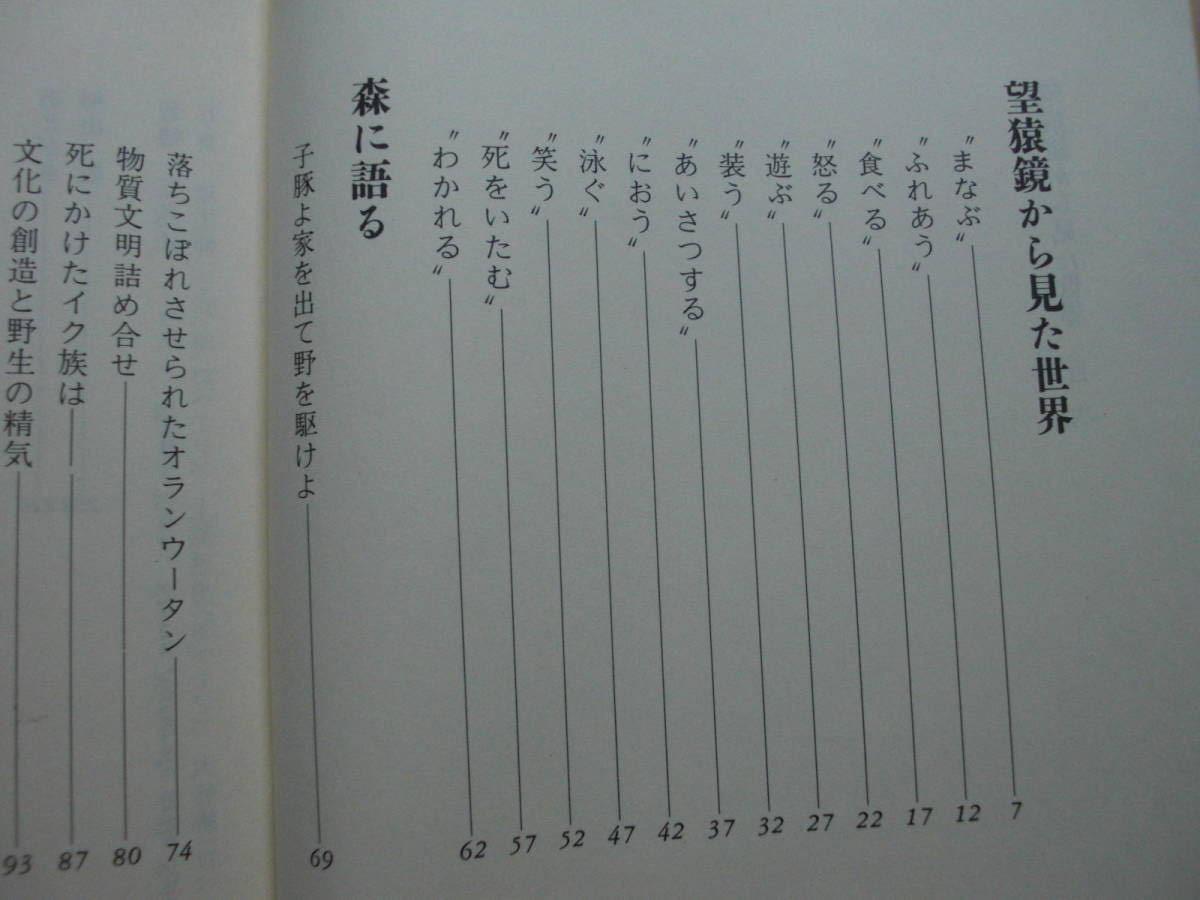 望猿鏡から見た世界
〝まなぶ〟 7
〝ふれあう〟 12
〝食べる〟 17
〝怒る〟 22
〝遊ぶ〟 27
〝装う〟 32
〝あいさつする〟 37
〝におう〟 42
〝泳ぐ〟 47
〝笑う〟 52
〝死をいたむ〟 57
〝わかれる〟 62
森に語る
子豚よ家を出て野を駆けよ 69
落ちこぼれさせられたオランウータン 74
物質文明詰め合せ 80
死にかけたイク族は── 87
文化の創造と野生の精気 93